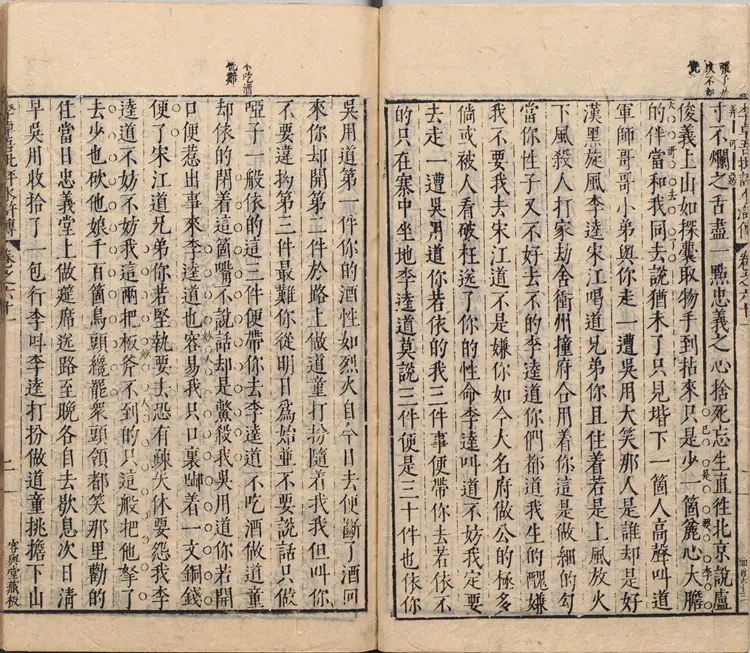 寸不爛之舌盡一點忠義之心捨死忘生直往北京說盧
俊義上山如探囊取物手到拈來只是少一箇麄心大膽
的伴當和我同去說猶未了只見堦下一箇人高聲叫道
軍師哥哥小弟與你走一遭吳用大笑那人是誰却是好
漢黑旋風李逵宋江喝道兄弟你且住着若是上風放火
下風殺人打家劫舍衝州撞府合用着你這是做細的勾
當你性子又不好去不的李逵道你們都道我生的醜嫌
我不要我去宋江道不是嫌你如今大名府做公的極多
倘或被人看破枉送了你的性命李逵叫道不妨我定要
去走一遭吳用道你若依的我三件事便帶你去若依不
的只在寨中坐地李逵道莫說三件便是三十件也依你
不吃酒
難
吳用道第一件你的酒性如烈火自今日去便斷了酒回
來你却開第二件於路上做道童打扮隨着我我但叫你
不要違拗第三件最難你從明日爲始並不要說話只做
啞子一般依的這三件便帶你去李逵道不吃酒做道童
却依的閉着這箇嘴不說話却是鱉殺我吳用道你若開
口便惹出事來李逵道也容易我只口裏啣着一文銅錢
便了宋江道兄弟你若堅執要去恐有疎失休要怨我李
逵道不妨不妨我這兩把板斧不到的只這般把他拏了
去少也砍他娘千百箇鳥頭纔罷衆頭領都笑那里勸的
住當日忠義堂上做筵席送路至晚各自去歇息次日清
早吳用收拾了一包行李叫李逵打扮做道童挑擔下山
容與堂藏板